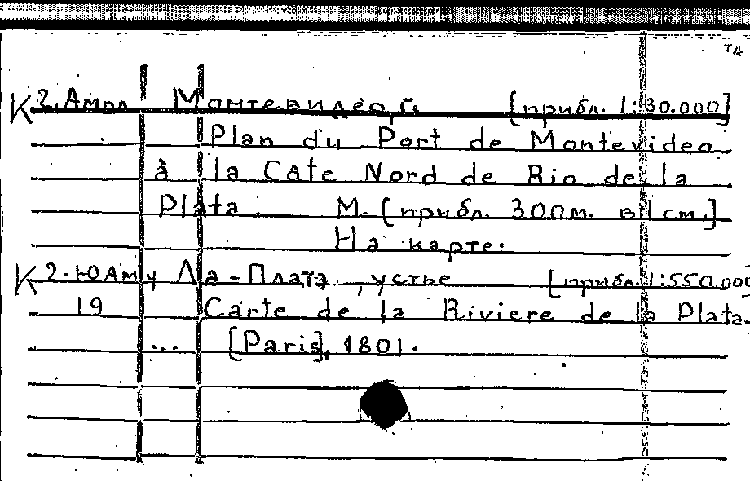 К2.Амла Монтевидео, г. [прибл. 1:30.000]
Plan du Port de Montevideo
à la Côte Nord de Rio de la
Plata М.[прибл. 300м. в 1см.]
На карте.
К2-Ю Ам 4 Ла-Плата, устье [прибл. 1:550.000
19 Carte de la Riviere de la Plata.
... [Paris], 1801.